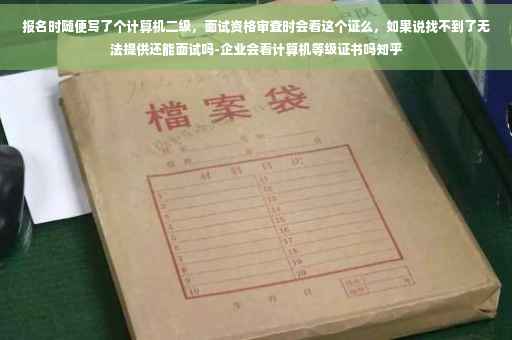 报名时随便写了个计算机二级，面试资格审查时会看这个证么，如果说找不到了无
法提供还能面试吗-企业会看计算机等级证书吗知乎
檔案袋
材料目次
1
2
3
4
5
6
7
8
9
10
11
12
13
14
15
16
17
18
19
20
年 月 日